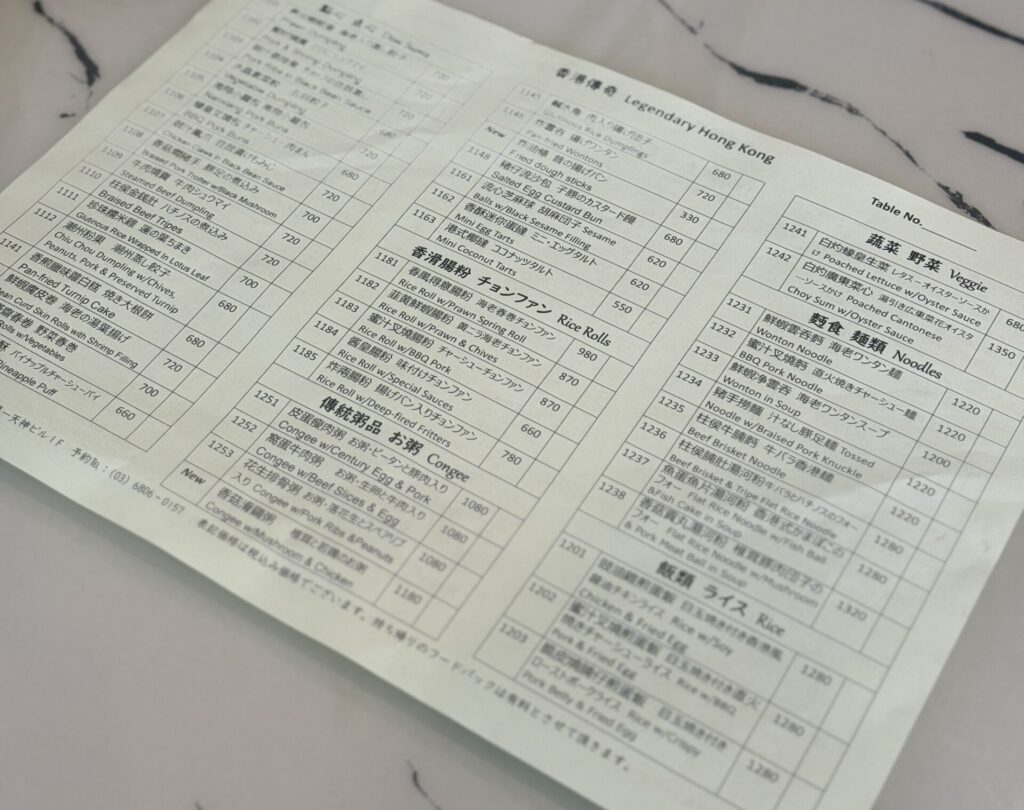 點心 点心 Dim Sum
720
Prawn Dumpling
720
Pork & Dumpling
Pork Ribs in Black Bean Sauce
720
Vegetable Dumpling
680
Nanxiang Pork Buns
720
BBQ Pork Buns
680
Chicken Claws in Black Bean Sauce
700
1107
Braised Pork Trotter w/Black Mushroom
720
1108
牛肉燒賣 牛肉シュウマイ
Steamed Beef Dumpling
700
1109
柱侯金錢肚 ハチノスの煮込み
Braised Beef Tripes
720
1110
珍珠糯米雞 蓮の葉ちまき
Glutinous Rice Wrapped In Lotus Leaf
680
1111
潮州粉果 潮州蒸し餃子
Chiu Chou Dumpling w/Chives,
Peanuts, Pork & Preserved Turnip
680
1112
香煎臘味蘿白糕 焼き大根餅
Pan-fried Turnip Cake
720
1141
鮮蝦腐皮卷 海老の湯葉揚げ
Bean Curd Skin Rolls with Shrimp Filling
700
野菜春巻
Rolls w/Vegetables
660
パイナップルチャーシューパイ
Pineapple Puff
香港傳奇 Legendary Hong Kong
1145
鹹水角 肉入り揚げ団子
Glutinous Rice Dumplings
680
1146
炸雲呑 揚げワンタン
Pan-fried Wontons
720
New
炸油條 昔の揚げパン
Fried dough sticks
330
1148
豬仔流沙包 子豚のカスタード饅
Salted Egg Custard Bun
680
1161
流心芝麻球 胡麻団子 Sesame
Balls w/Black Sesame Filling
620
1162
香酥迷你蛋撻 ミニ・エッグタルト
Mini Egg Tarts
620
1163
港式椰撻 ココナッツタルト
Mini Coconut Tarts
550
香滑腸粉 チョンファン Rice Rolls
1181
春風得意腸粉 海老春巻チョンファン
Rice Roll w/Prawn Spring Roll
980
1182
韮黃鮮蝦腸粉 黄ニラ海老チョンファン
Rice Roll w/Prawn & Chives
870
1183
蜜汁叉燒腸粉 チャーシューチョンファン
Rice Roll w/BBQ Pork
870
1184
醬皇腸粉 味付けチョンファン
Rice Roll w/Special Sauces
660
1185
炸兩腸粉 揚げパン入りチョンファン
Rice Roll w/Deep-fired Fritters
780
傳統粥品 お粥 Congee
1251
皮蛋瘦肉粥 お粥・ピータンと豚肉入り
Congee w/Century Egg & Pork
1080
1252
窩蛋牛肉粥 お粥・生卵と牛肉入り
Congee w/Beef Slices & Egg
1080
1253
花生排骨粥 お粥・落花生とスペアリブ
入り Congee w/Pork Ribs &Peanuts
1080
New
香菇滑雞粥 椎茸と若鶏のお粥
Congee w/Mushroom & Chicken
1180
Table No.
蔬菜 野菜 Veggie
1241
白灼蠔皇生菜 レタス・オイスターソースか
け Poached Lettuce w/Oyster Sauce
680
1242
白灼廣東菜心 湯引き広東菜花オイスタ
ーソースかけ Poach Cantonese
Choy Sum w/Oyster Sauce
1350
麪食 麺類 Noodles
1231
鮮蝦雲吞麪 海老ワンタン麺
Wonton Noodle
1220
1232
蜜汁叉燒麪 直火焼きチャーシュー麺
BBQ Pork Noodle
1220
1233
鮮蝦淨雲吞 海老ワンタンスープ
Wonton in Soup
1200
1234
豬手撈麪 汁なし豚足麺 Tossed
Noodle w/Braised Pork Knuckle
1220
1235
柱侯牛腩麪 牛バラ香港麺
Beef Brisket Noodle
1220
1236
柱侯腩肚湯河粉 牛バラとハチノスのフォー
Beef Brisket & Tripe Flat Rice Noodle
1280
1237
魚蛋魚片湯河粉 香港式かまぼこの
フォー Flat Rice Noodle w/Fish Ball
&Fish Cake in Soup
1280
1238
蘑菇貢丸湯河粉 椎茸豚肉団子の
フォー Flat Rice Noodle w/Mushroom
& Pork Meat Ball in Soup
1320
飯類 ライス Rice
1201
豉油雞煎蛋飯 目玉焼き付き香港風
醤油チキンライス Rice w/Soy
Chicken & Fried Egg
1280
1202
蜜汁叉燒煎蛋飯 目玉焼き付き直火
焼きチャーシューライス Rice w/BBQ
Pork & Fried Egg
1280
1203
脆皮燒腩仔煎蛋飯 目玉焼き付き
ローストポークライス Rice w/Crispy
Pork Belly & Fried Egg
1280
天神ビル1F 予約℡:(03) 6806-0157 表記価格は税込み価格でございます。持ち帰りのフードパックは有料とさせて頂きます。